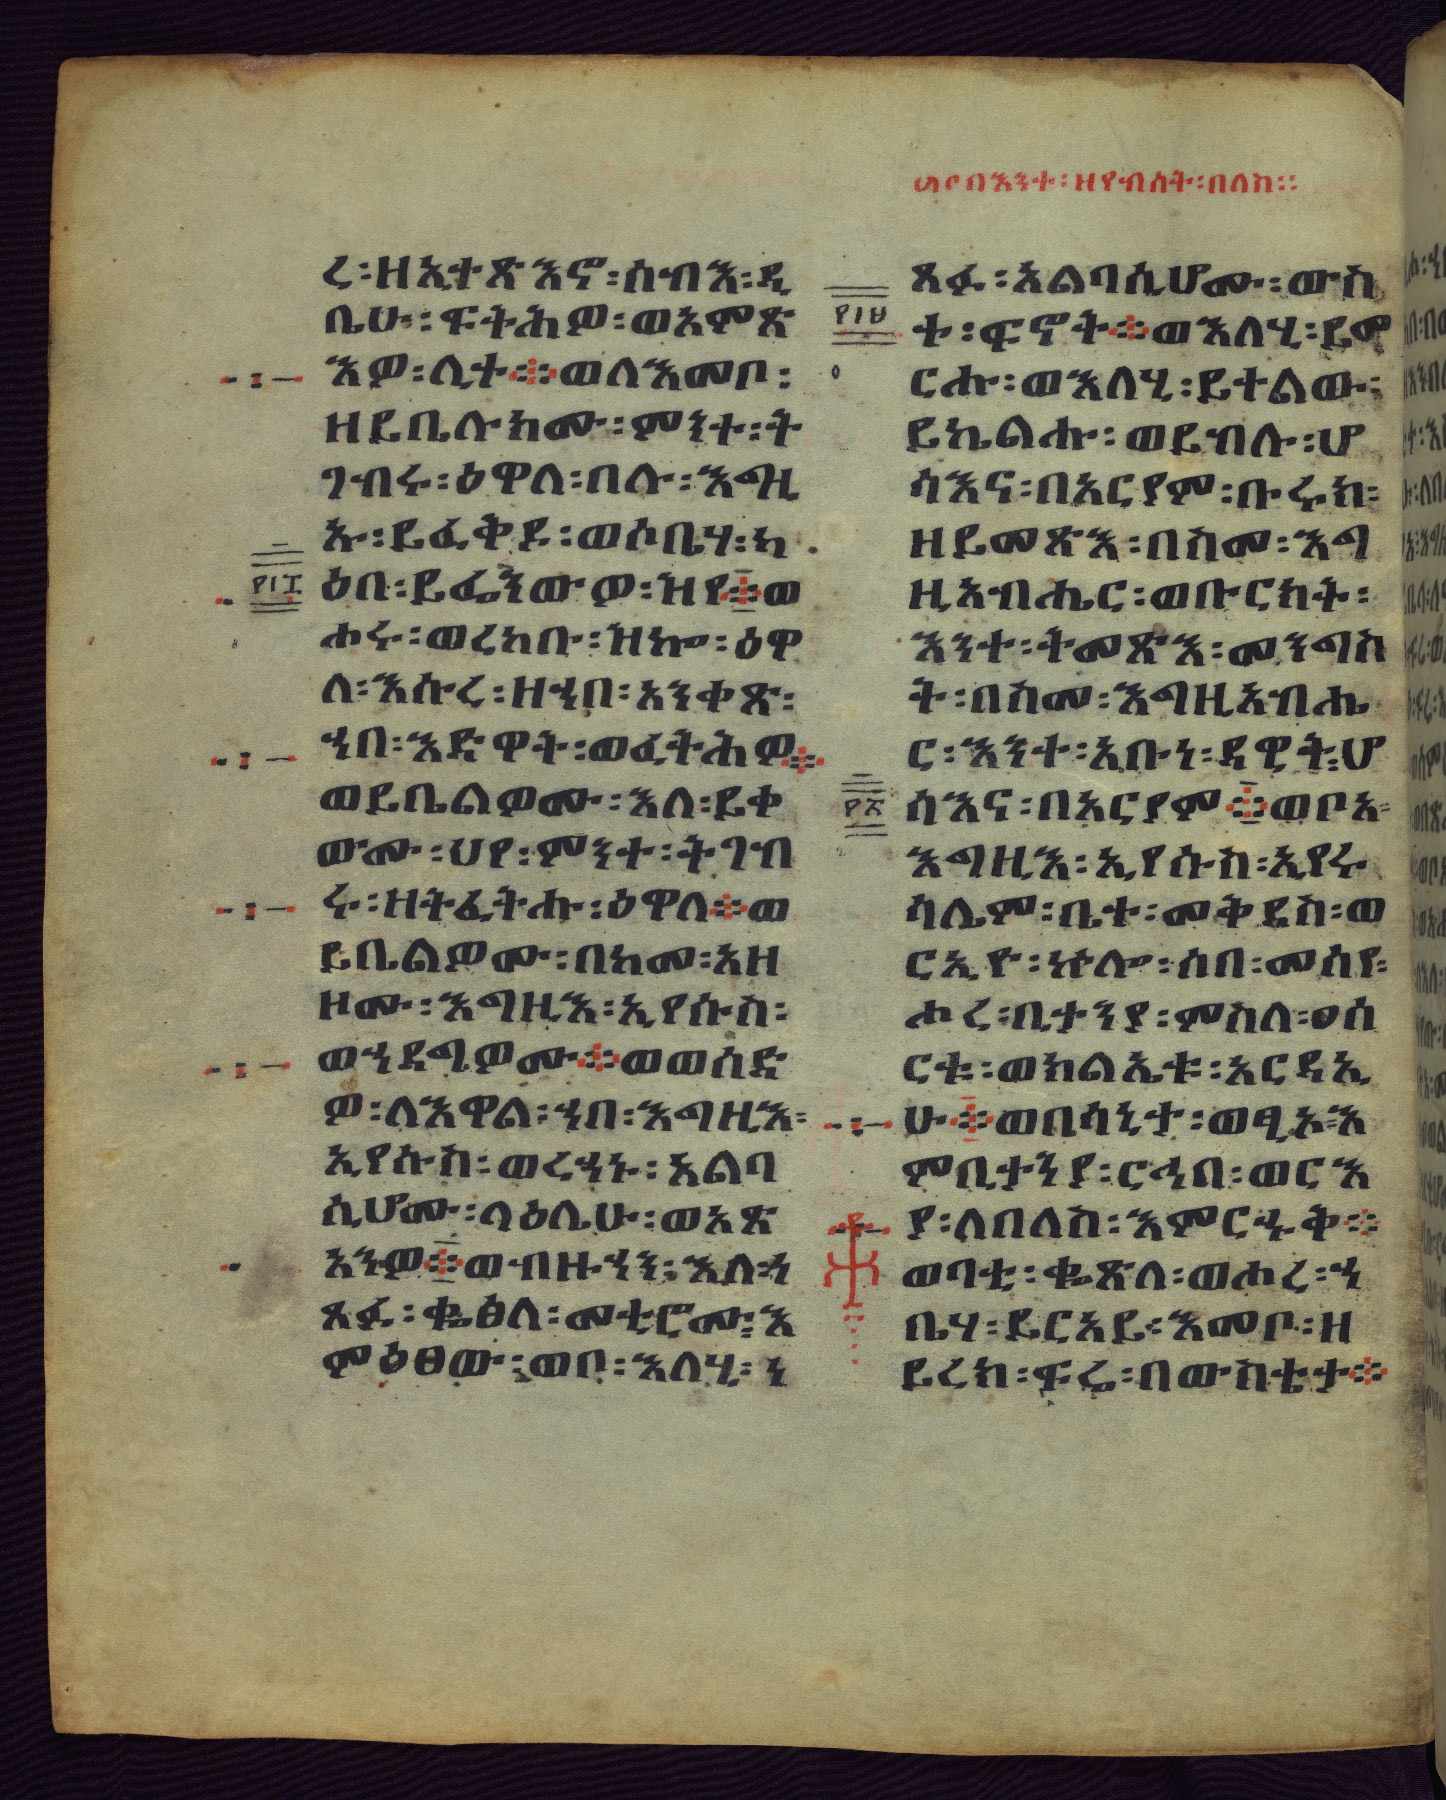 በእንተ፡ዘየብሰት፡በለስ፡፡
ረ፡ዘኢተጽእኖ፡ሰብእ፡ዲ
ቤሁ፡ፍትሕዎ፡ወአምጽ
እዎ፡ሊተ፨ወለእመቦ፡
ዘይቤሉክሙ፡ምንተ፡ት
ገብሩ፡ዕዋለ፡በሉ፡እግዚ
ኡ፡ይፈቅዶ፡ወሶቤሃ፡ካ
፻፲፰
ዕበ፡ይፌንውዎ፡ዝየ፨ወ
ሖሩ፡ወረከቡ፡ዝኰ፡ዕዋ
ለ፡እሱረ፡ዘኀበ፡አንቀጽ፡
ኀበ፡እድዋት፡ወፈትሕዎ፨
ወይቤልዎሙ፡እለ፡ይቀ
ውሙ፡ህየ፡ምንተ፡ትገብ
ሩ፡ዘትፈትሑ፡ዕዋለ፨ወ
ይቤልዎሙ፡በከመ፡አዘ
ዞሙ፡እግዚእ፡ኢየሱስ፡
ወኀደግዎሙ፨ወወሰድ
ዎ፡ለእዋል፡ኀበ፡እግዚእ፡
ኢየሱስ፡ወረኀኑ፡አልባ
ሲሆሙ፡ላዕሌሁ፡ወአጽ
አንዎ፨ወብዙኀን፡እለ፡ነ
ጸፉ፡ቈፅለ፡መቲሮሙ፡እ
ምዕፀው፡ወቦ፡እለሂ፡ነ
ጸፉ፡አልባሲሆሙ፡ውስ
፻፲፱
ተ፡ፍኖት፨ወእለሂ፡ይመ
ርሑ፡ወእለሂ፡ይተልው፡
ይኬልሑ፡ወይብሉ፡ሆ
ሳእና፡በአርያም፡ቡሩክ፡
ዘይመጽእ፡በስመ፡እግ
ዚአብሔር፡ወቡርክት፡
እንተ፡ትመጽእ፡መንግስ
ት፡በስመ፡እግዚአብሔ
ር፡እንተ፡አቡነ፡ዳዊት፡ሆ
፻፳
ሳእና፡በአርያም፨ወቦአ፡
እግዚእ፡ኢየሱስ፡ኢየሩ
ሳሌም፡ቤተ፡መቅደስ፡ወ
ርኢዮ፡ኵሎ፡ሰበ፡መስየ፡
ሖረ፡ቢታንያ፡ምስለ፡፲ወ፪
አርዳኢ
ሁ፨ወበሳኒታ፡ወፂአ፡እ
ምቢታንያ፡ርኅበ፡ወርእ
ያ፡ለበለስ፡እምርኁቅ፨
ወባቲ፡ቈጽለ፡ወሖረ፡ኀ
ቤሃ፡ይርአይ፡እመቦ፡ዘ
ይረክ፡ፍሬ፡በውስቴታ፨